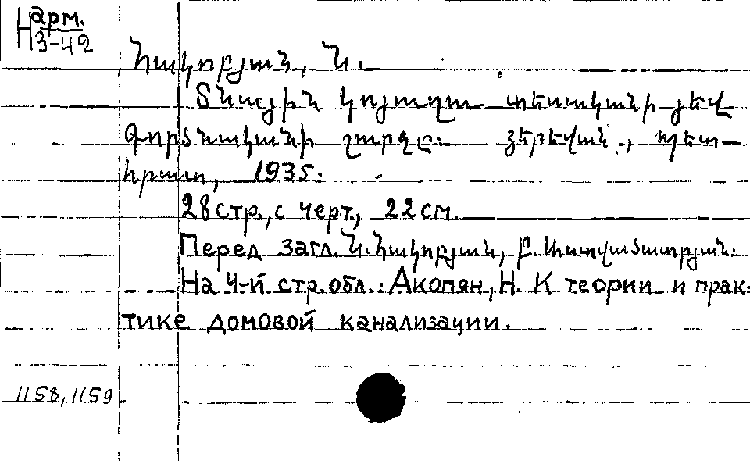 Н арм.
3-42
Հակոբյան, Ն.
Տնային կոյուղու տեսականի յեվ
գործնականի շուրջը. Յերեվան, պետ-
հրատ, 1935.
28 стр., с черт., 22 см.
Перед загл. Ն. Հակոբյան, Բ. Աստվածատրյան.
На 4-й стр. обл.: Акопян, Н. К теории и прак-
тике домовой канализации.
1158, 1159